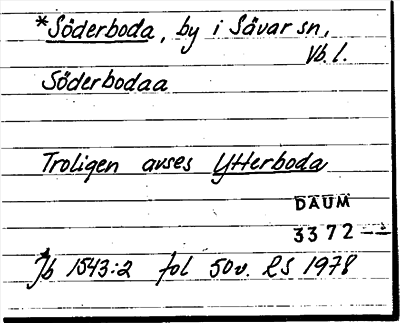 *Söderboda, by i Sävar sn,
Vb. l.
Söderbodaa
Troligen avses Ytterboda
DAUM
3372
Jb 1543:2 fol 50v. LS 1978